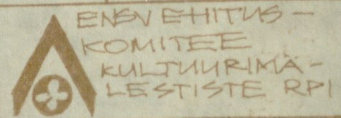 ENSV EHITUS-
KOMITEE
KULTUURIMÄ-
LESTISTE RPI